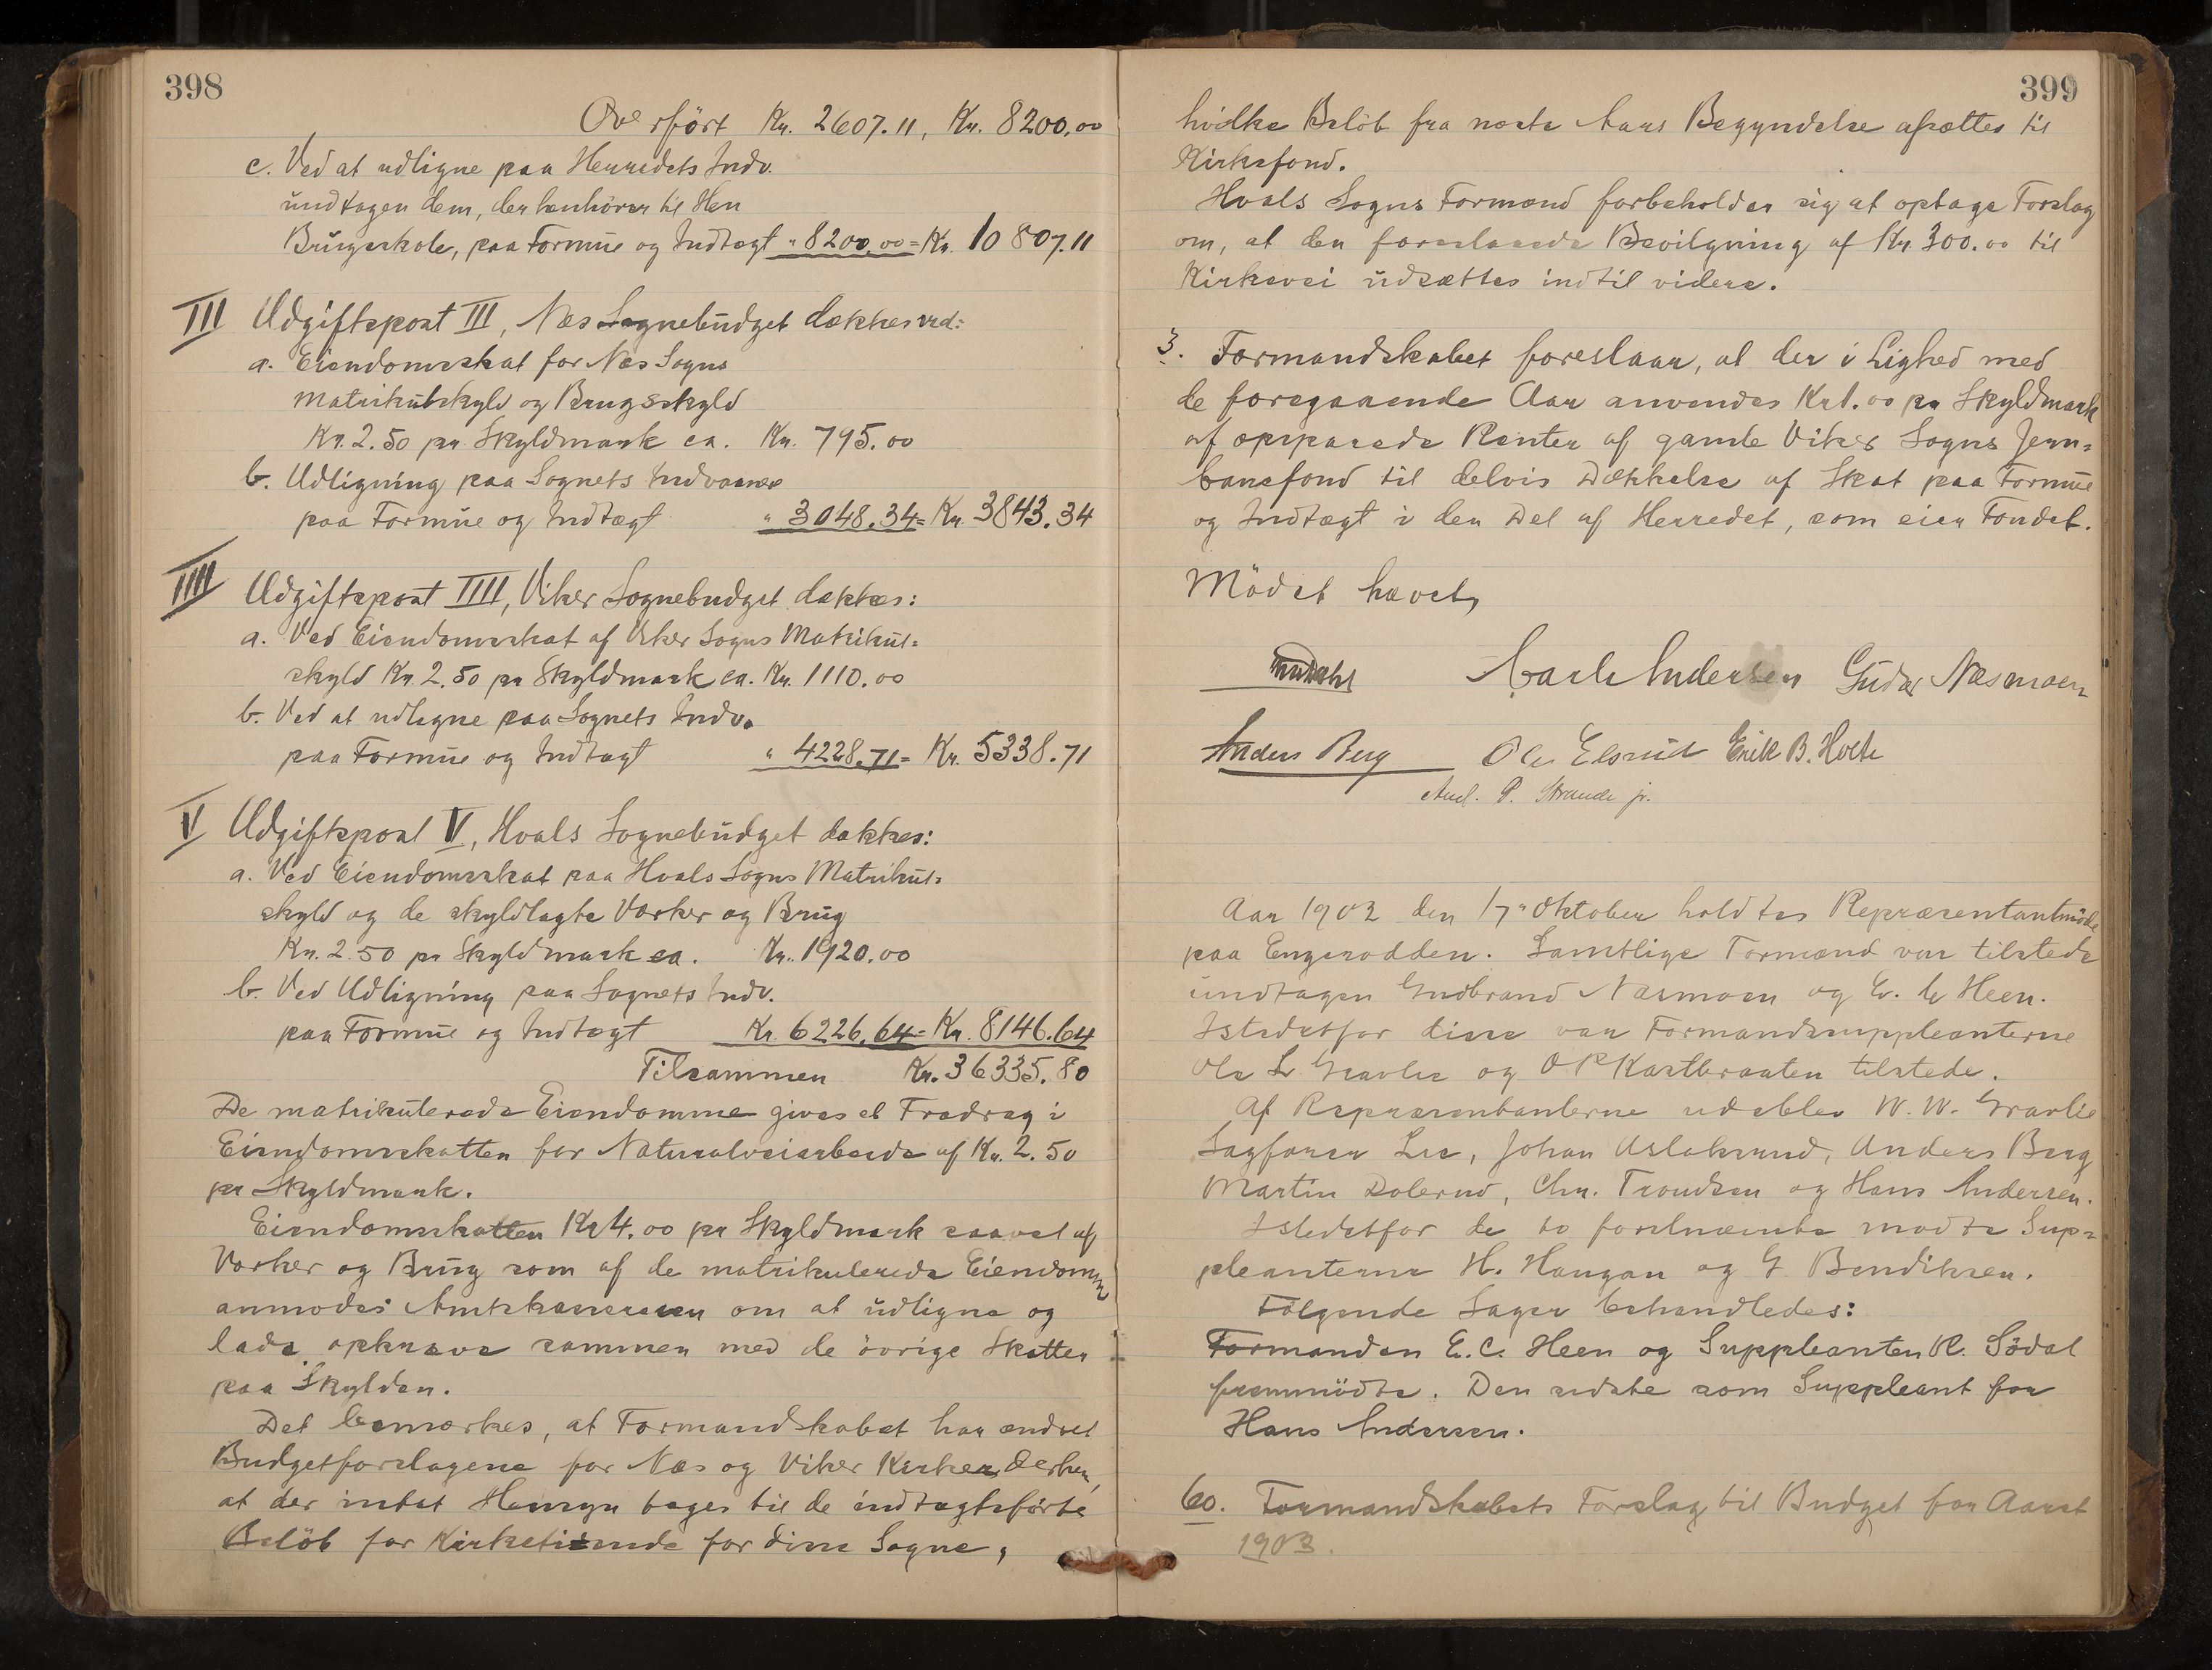 398
Overført Kr. 2607.11, Kr. 8200.00
c. Ved at udligne paa Herredets Indv.
undtagen dem, der henhører til Hen
Brugsskole, paa Formue og Indtægt " 8200.00 = Kr. 10807.11
III Udgiftspost III, Næs Sognebudget dækkes ved:
a. Eiendomsskat for Næs Sogns
Matrikulskyld og Brugsskyld
Kr. 2.50 pr. Skyldmark ca. Kr. 795.00
b. Udligning paa Sognets Indvaanere
paa Formue og Indtægt " 3048.34 = Kr. 3843.34
IIII Udgiftspost IIII, Viker Sognebudget dækkes:
a. Ved Eiendomsskat af Viker Sogns Matrikul=
skyld Kr. 2.50 pr Skyldmark ca. Kr. 1110.00
b. Ved at udligne paa Sognets Indv.
paa Formue og Indtægt " 4228.71 = Kr. 5338.71
V Udgiftspost V, Hvals Sognebudget dækkes:
a. Ved Eiendomsskat paa Hvals Sogns Matrikul=
skyld og de skyldlagte Værker og Brug
Kr. 2.50 pr Skyldmark ca. Kr. 1920.00
b. Ved Udligning paa Sognets Indv.
paa Formue og Indtægt Kr. 6226.64 = Kr. 8146.64
Tilsammen Kr. 36335.80
De matrikulerede Eiendomme gives et Fradrag i
Eiendomsskatten for Naturalveiarbeide af Kr. 2.50
pr Skyldmark.
Eiendomsskatten Kr 4.00 pr Skyldmark saavel af
Værker og Brug som af de matrikulerede Eiendomme
anmodes Amtskassereren om at udligne og
lade opkræve sammen med de øvrige Skatter
paa Skylden.
Det bemærkes, at Formandskabet har ændret
Budgetforslagene for Næs og Viker Kirker derhen,
at der intet Hensyn tages til de indtægtsførte
Beløb for Kirketiende for disse Sogne,
399
hvilke Beløb fra næste Aars Begyndelse afsættes til
Kirkefond.
Hvals Sogns Formænd forbeholder sig at optage Forslag
om, at den foreslaaede Bevilgning af Kr. 300.00 til
Kirkevei udsættes indtil videre.
3. Formandskabet foreslaar, at der i Lighed med
de foregaaende Aar anvendes Kr 1.00 pr Skyldmark
af opsparede Renter af gamle Viker Sogns Jern=
banefond til delvis Dækkelse af Skat paa Formue
og Indtægt i den Del af Herredet, som eier Fondet.
Mødet hævet,
Carl Andersen Gudbr Næsmoen
Anders Berg Ole Elsrud Erik B. Holte
And. P. Strande jr.
Aar 1902 den 17de Oktober holdtes Repræsentantmøde
paa Engerodden. Samtlige Formænd var tilstede
undtagen Gudbrand Næsmoen og E. C Heen.
Istedetfor disse var Formandssuppleanterne
Ole L Gravlie og O P Kastbraaten tilstede.
Af Repræsentanterne udeblev W. W. Gravlie
Sagfører Lie, Johan Aslaksrud, Anders Berg
Martin Dolerud, Chr. Trondsen og Hans Andersen.
Istedetfor de to førstnævnte mødte Sup=
pleanterne H. Haugan og G. Bendiksen.
Følgende Sager behandledes:
Formanden E. C. Heen og Suppleanten R. Södal
fremmødte. Den sidste som Suppleant for
Hans Andersen.
60. Formandskabets Forslag til Budget for Aaret
1903.